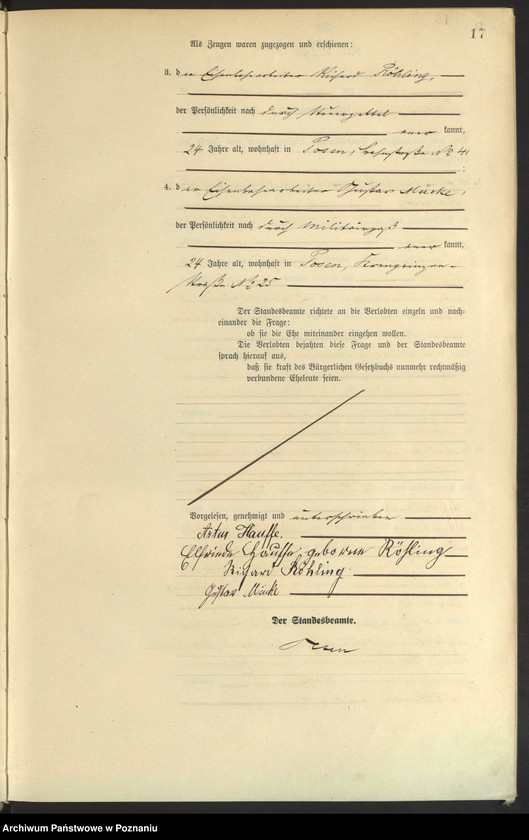 17
Als Zeugen waren zugezogen und erschienen:
3. der Eisenbahnarbeiter Richard Röhling,
der Persönlichkeit nach durch Steuerzettel
aner kannt,
24 Jahre alt, wohnhaft in Posen, No 41
4. der Eisenbahnarbeiter Gustav Mücke,
der Persönlichkeit nach durch Militärpaß
aner kannt,
24 Jahre alt, wohnhaft in Posen, Kronprinzen-
straße No 25
Der Standesbeamte richtete an die Verlobten einzeln und nach-
einander die Frage:
ob sie die Ehe miteinander eingehen wollen.
Die Verlobten bejahten diese Frage und der Standesbeamte
sprach hierauf aus,
daß sie kraft des Bürgerlichen Gesetzbuchs nunmehr rechtmäßig
verbundene Eheleute seien.
Vorgelesen, genehmigt und unterschrieben
Artur Hauffe.
Elfriede Hauffe, geborene Röhling
Richard Röhling
Gustav Mücke
Der Standesbeamte.
Archiwum Państwowe w Poznaniu